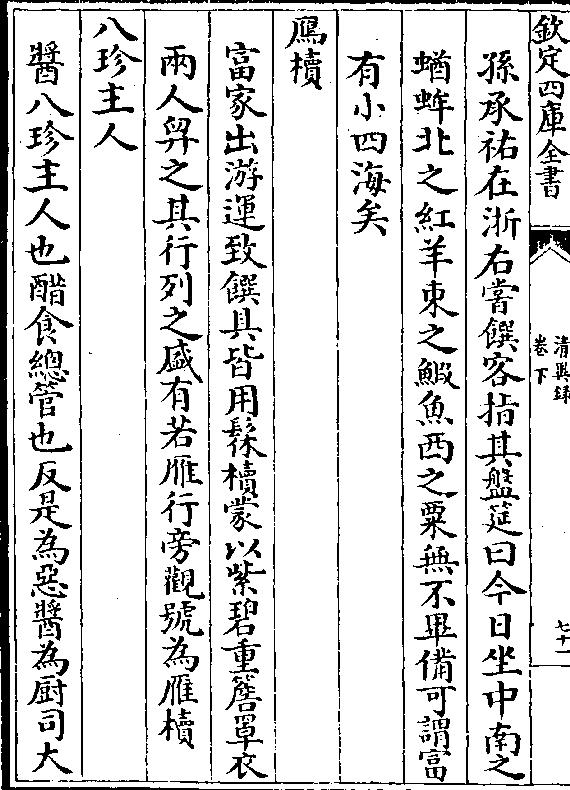 欽定四庫全書
清異錄
卷下
七十一
孫承祐在浙右嘗饌客指其盤筵曰今日坐中南之
蝤蛑北之紅羊東之鰕魚西之粟無不畢備可謂富
有小四海矣
鴈櫝
富家出游運致饌具皆用髹櫝蒙以紫碧重簷罩衣
兩人舁之其行列之盛有若雁行旁觀號為雁櫝
八珍主人
醬八珍主人也醋食總管也反是為惡醬為厨司大